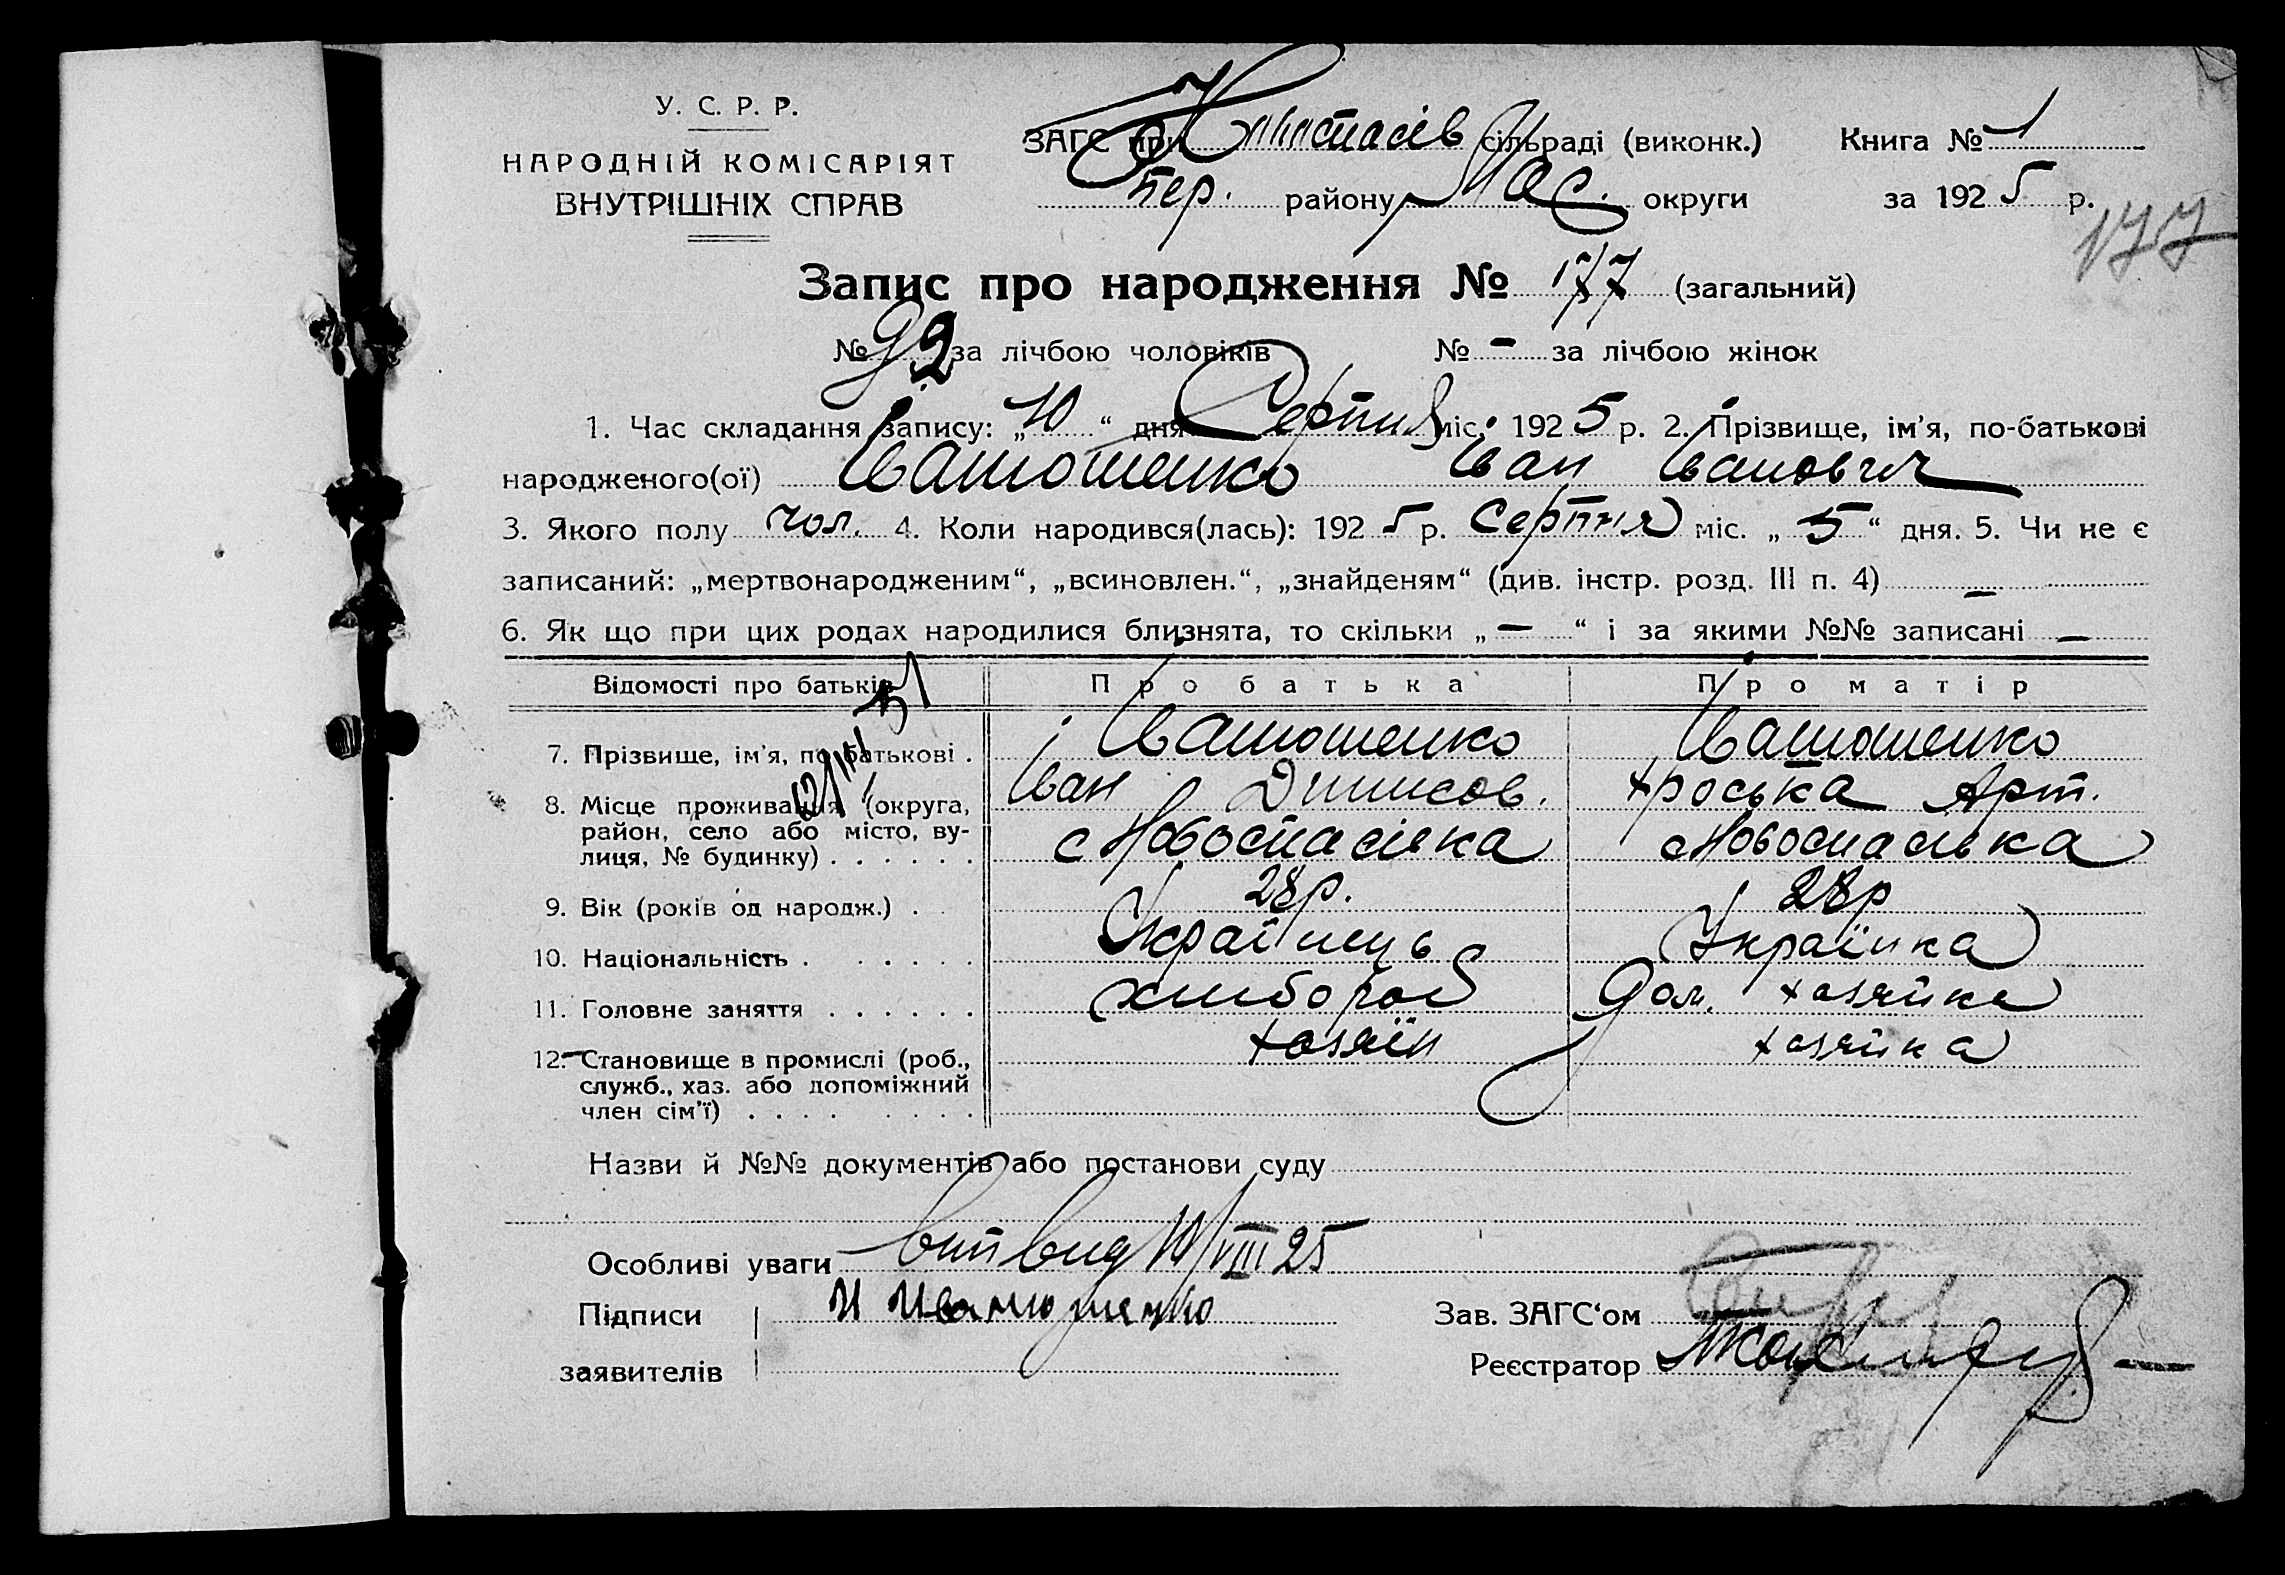 У. С. Р. Р.
НАРОДНІЙ КОМІСАРІЯТ
ВНУТРІШНІХ СПРАВ
ЗАГС при сільраді (виконк.) Книга № 1
Бер. району Мар. округи за 1925 р.
177
Запис про народження № 177 (загальний)
№ 92 за лічбою чоловіків № – за лічбою жінок
1. Час складання запису: „10“ дня Серпня міс. 1925 р. 2. Прізвище, ім'я, по-батькові
народженого(ої) Іванющенко Іван Іванович
3. Якого полу чол. 4. Коли народився(лась): 1925 р. Серпня міс. „5“ дня. 5. Чи не є
записаний: „мертвонародженим“, „всиновлен.“, „знайденям“ (див. інстр. розд. III п. 4) —
6. Як що при цих родах народилися близнята, то скільки „—“ і за якими №№ записані —
Відомості про батьків Про батька Про матір
7. Прізвище, ім'я, по батькові . Іванющенко Іванющенко
Іван Динисов. Хроська Арт.
8. Місце проживання (округа,
район, село або місто, ву-
лиця, № будинку) . . . . . . с Новоспасівка с Новоспасівка
9. Вік (років од народж.) . 28р. 28р
10. Національність . . . . . . Українець Українка
11. Головне заняття . . . . . . хлибороб Дом. хозяйка
12. Становище в промислі (роб.,
служб., хаз. або допоміжний
член сім'ї) . . . . . . . . хозяїн хозяйка
Назви й №№ документів або постанови суду
Особливі уваги 10/VIII 25
Підписи И Иванющенко Зав. ЗАГС'ом
заявителів Реєстратор